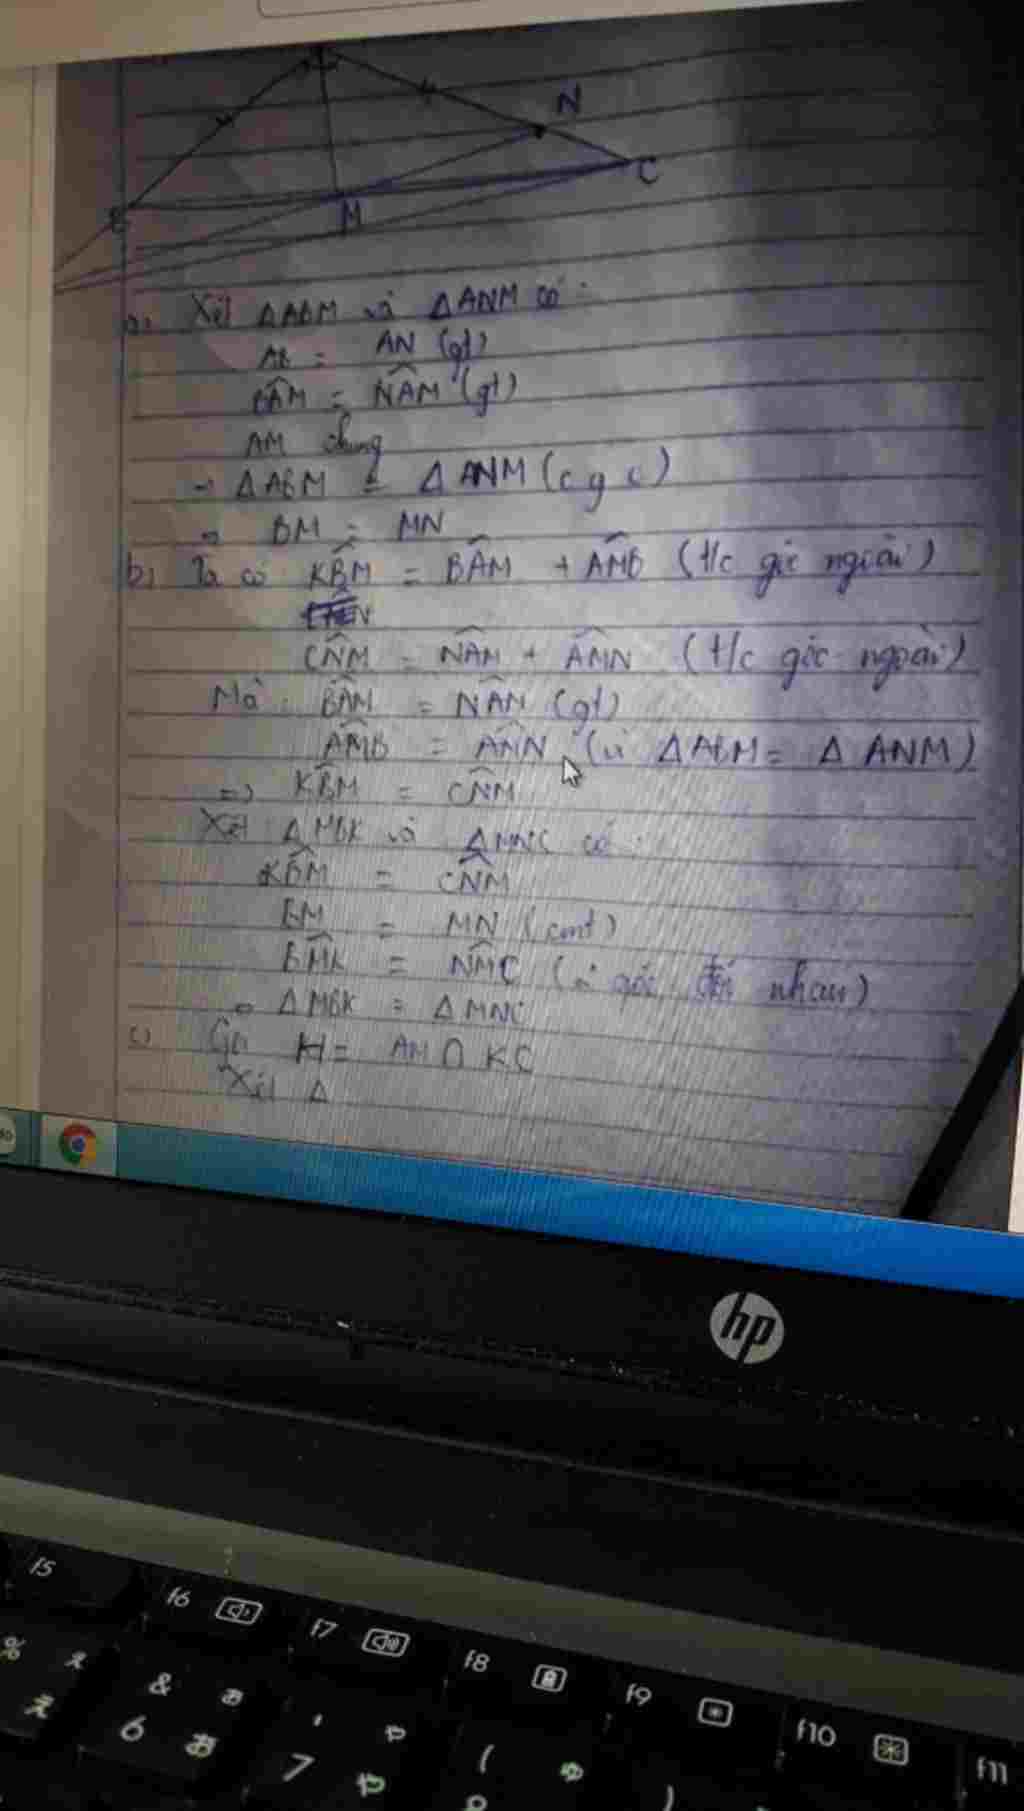 N
C
M
a) Xét ΔABM và ΔANM có:
AB = AN (gt)
BÂM = NÂM (gt)
AM chung
⇒ ΔABM = ΔANM (c g c)
⇒ BM = MN
b) Ta có KB̂M = BÂM + AM̂B (t/c góc ngoài)
CN̂M = NÂM + AM̂N (t/c góc ngoài)
Mà BÂM = NÂM (gt)
AM̂B = AM̂N (vì ΔABM = ΔANM)
=> KB̂M = CN̂M
Xét ΔMBK và ΔMNC có:
KB̂M = CN̂M
BM = MN (cmt)
BM̂K = NM̂C (2 góc đối nhau)
⇒ ΔMBK = ΔMNC
c) Gọi H = AM ∩ KC
Xét Δ
hp
f5 f6 f7 f8 f9 f10 f11
% &
6 7 (
)